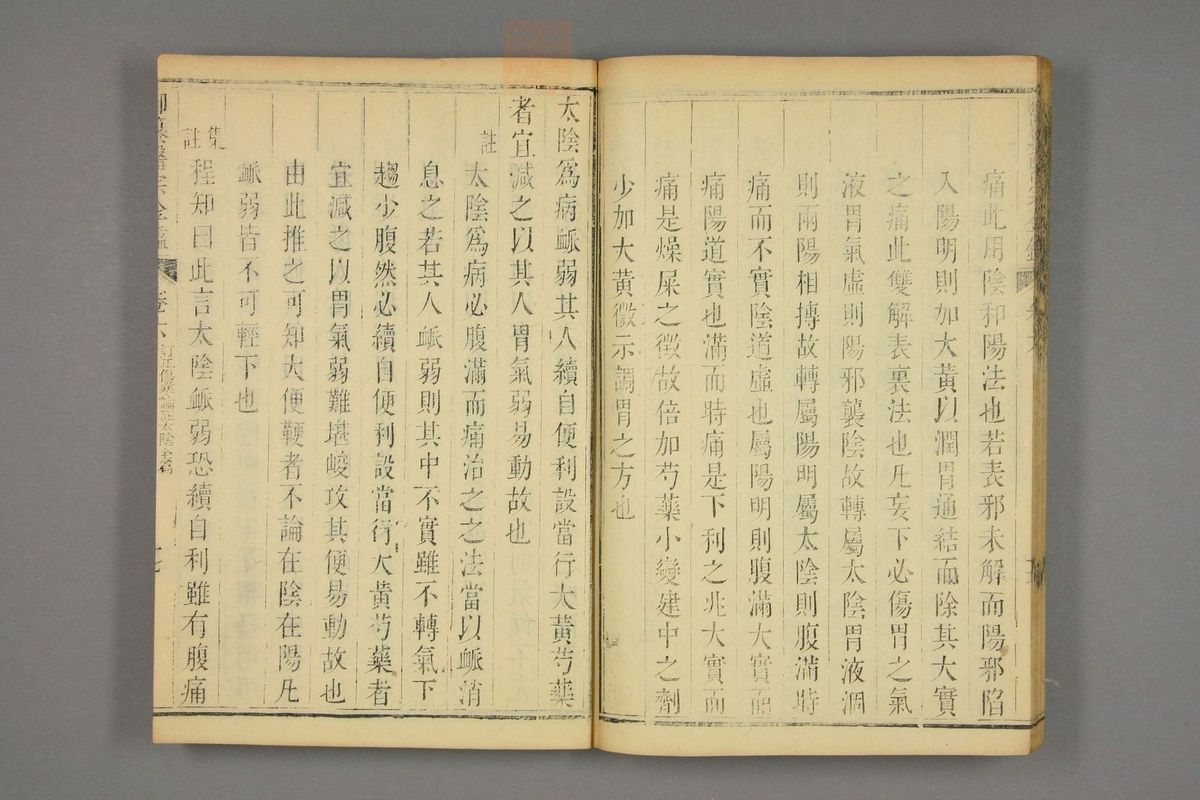 痛此用陰和陽法也若表邪未解而陽邪陷
入陽明則加大黃以潤胃通結而除其大實
之痛此雙解表裏法也凡妄下必傷胃之氣
液胃氣虛則陽邪襲陰故轉屬太陰胃液涸
則兩陽相摶故轉屬陽明屬太陰則腹滿時
痛而不實陰道虛也屬陽明則腹滿大實而
痛陽道實也滿而時痛是下利之兆大實而
痛是燥屎之徵故倍加芍藥小變建中之劑
少加大黃微示調胃之方也
太陰爲病脈弱其人續自便利設當行大黃芍藥
者宜減之以其人胃氣弱易動故也
註
太陰爲病必腹滿而痛治之之法當以脈消
息之若其人脈弱則其中不實雖不轉氣下
趨少腹然必續自便利設當行大黃芍藥者
宜減之以胃氣弱難堪峻攻其便易動故也
由此推之可知大便鞕者不論在陰在陽凡
脈弱皆不可輕下也
集註
程知曰此言太陰脈弱恐續自利雖有腹痛